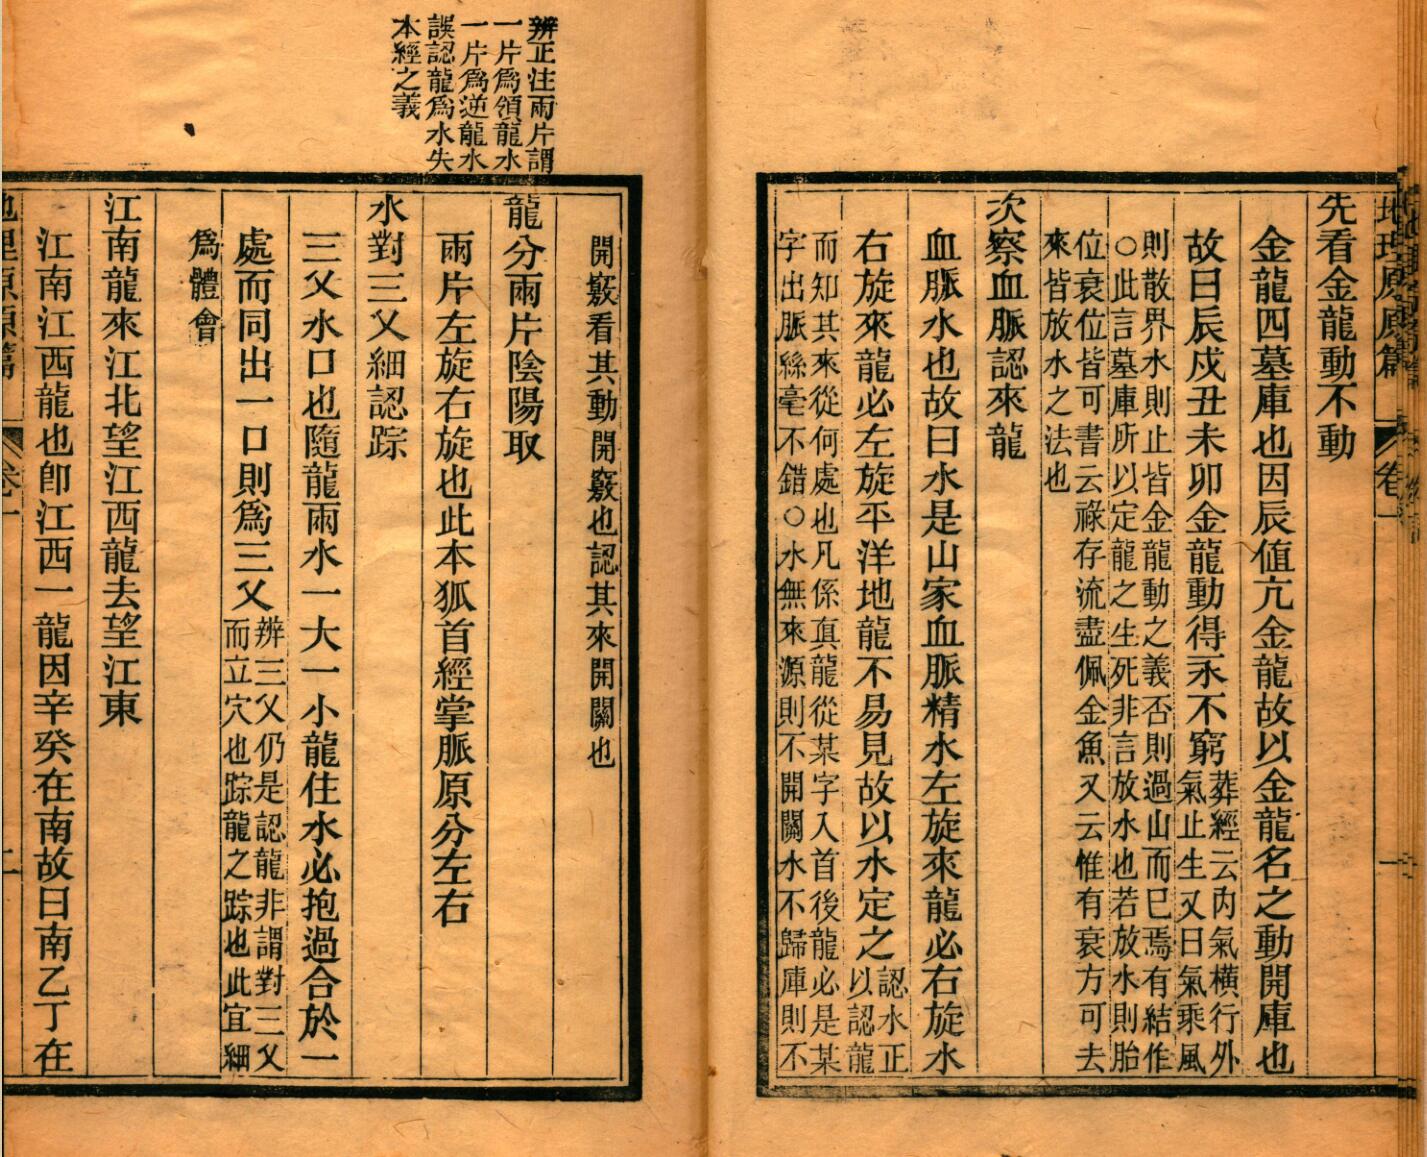 地理原原篇 卷一
先看金龍動不動
金龍四墓庫也因辰值亢金龍故以金龍名之動開庫也
故曰辰戍丑未卯金龍動得來不窮葬經云內氣橫行外
氣止生又曰氣乘風
則散界水則止皆金龍動之義否則過山而已焉有結作
○此言墓庫所以定龍之生死非言放水也若放水則胎
位衰位皆可書云祿存流盡佩金魚又云惟有衰方可去
來皆放水之法也
次察血脈認來龍
血脈水也故曰水是山家血脈精水左旋來龍必右旋水
右旋來龍必左旋平洋地龍不易見故以水定之認水正
以認龍
而知其來從何處也凡係真龍從某字入首後龍必是某
字出脈絲毫不錯○水無來源則不開關水不歸庫則不
開竅看其動開竅也認其來開關也
龍分兩片陰陽取
兩片左旋右旋也此本狐首經掌脈原分左右
水對三叉細認踪
三叉水口也隨龍兩水一大一小龍住水必抱過合於一
處而同出一口則為三叉辨三叉仍是認龍非謂對三叉
而立穴也踪龍之踪也此宜細
為體會
江南龍來江北望江西龍去望江東
江南江西龍也卽江西一龍因辛癸在南故曰南乙丁在
卷一
二
辨正注兩片謂
一片為領龍水
一片為逆龍水
誤認龍為水失
本經之義